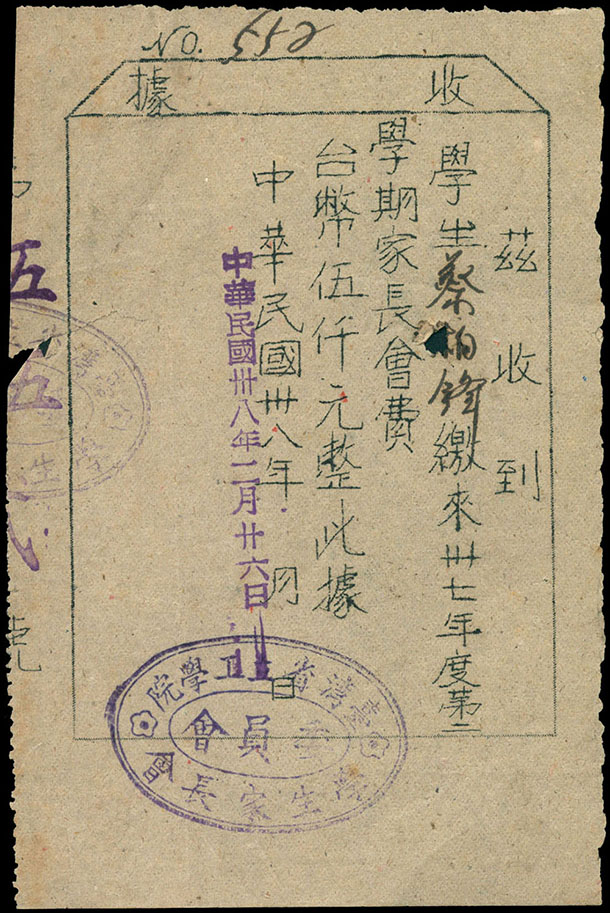 NO. 552
收據
茲收到
學生蔡柏鋒繳來卅七年度第二
學期家長會費
台幣伍仟元整此據
中華民國卅八年 月 日
中華民國卅八年二月廿六日
臺灣省立工學院
學生家長會
委員會
五
五
號